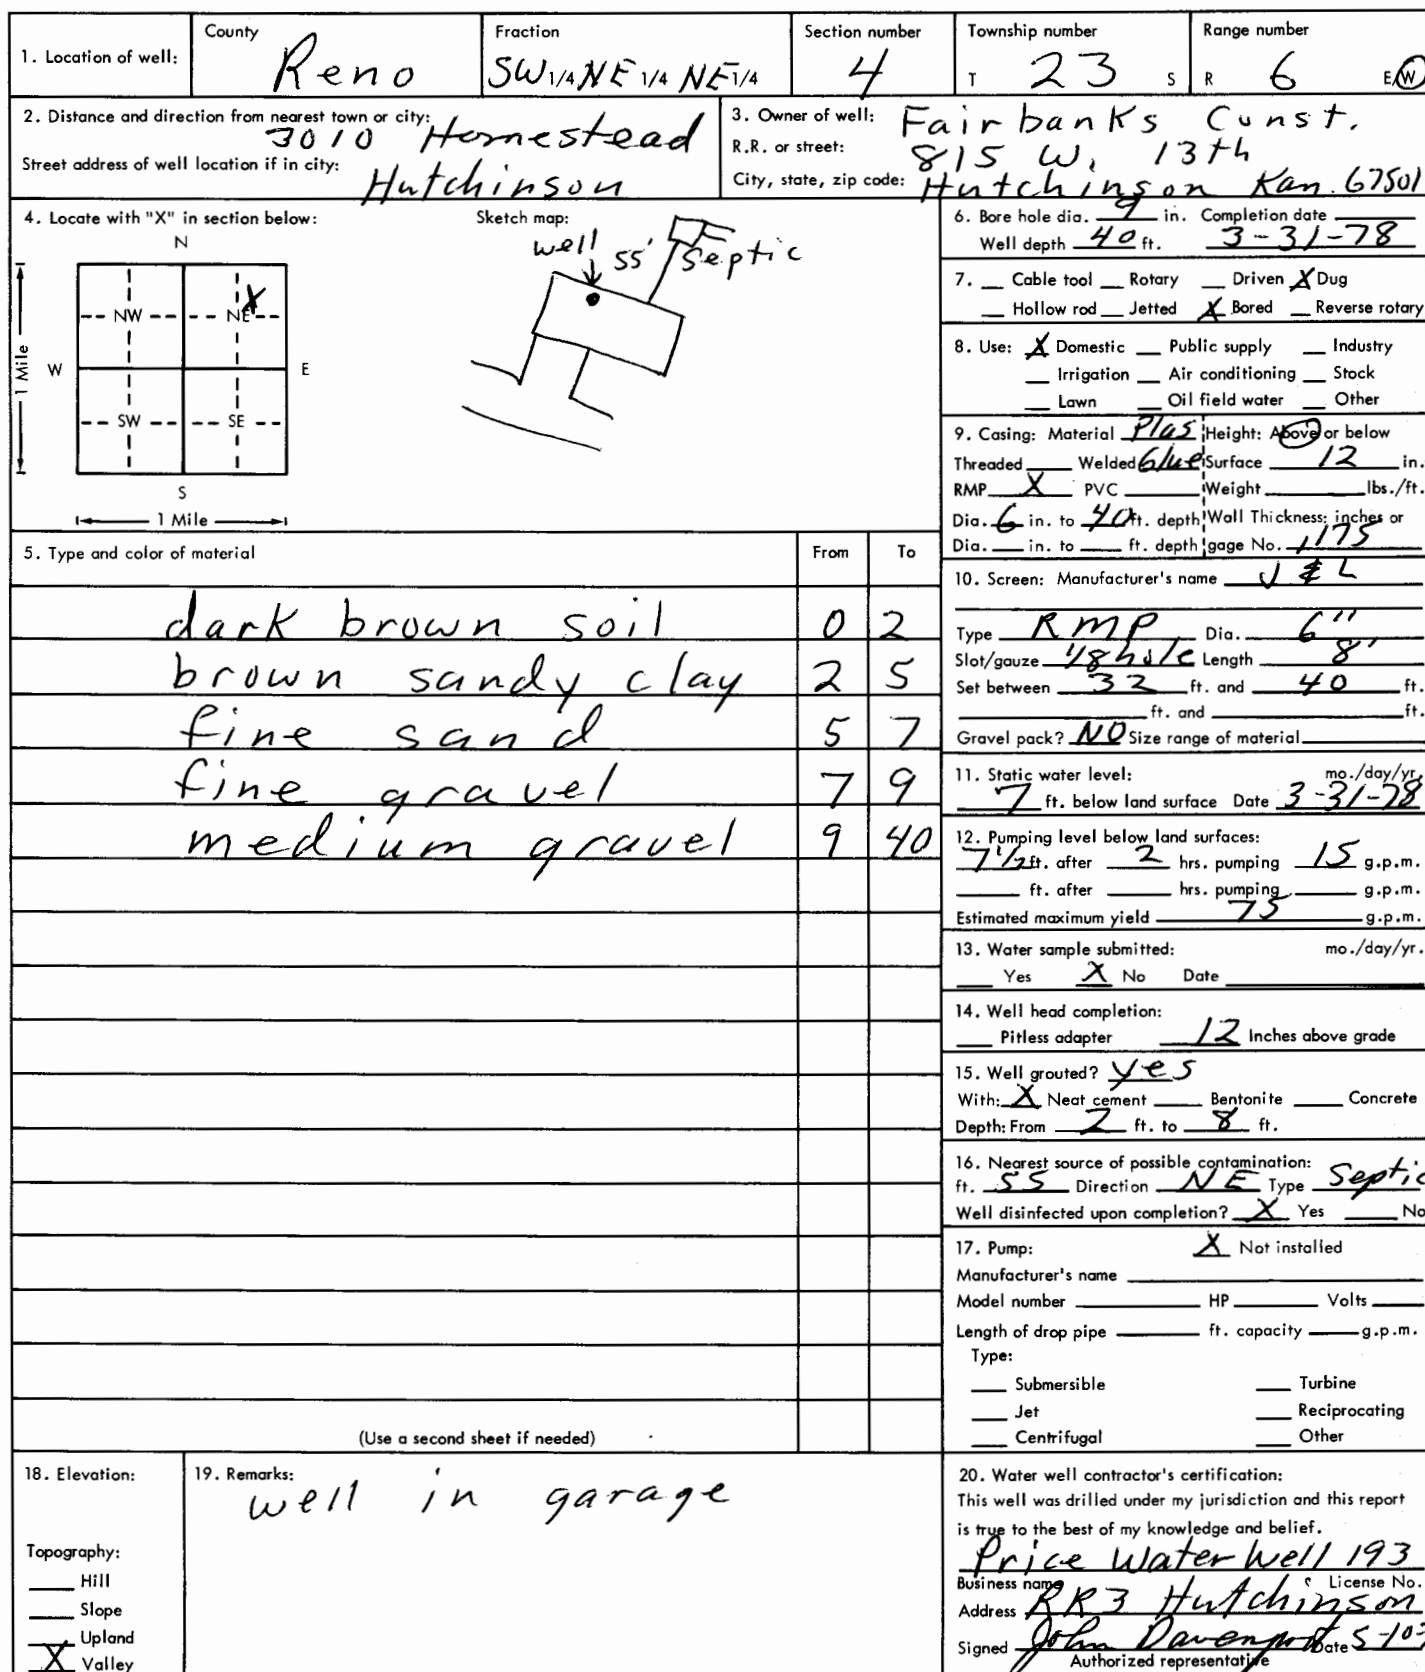 1. Location of well: County Reno Fraction SW 1/4 NE 1/4 NE 1/4 Section number 4 Township number T 23 S Range number R 6 E/W
2. Distance and direction from nearest town or city: 3010 Homestead
Street address of well location if in city: Hutchinson
3. Owner of well: Fairbanks Const.
R.R. or street: 815 W. 13th
City, state, zip code: Hutchinson Kan. 67501
4. Locate with "X" in section below:
N
NW NE
X
W E
SW SE
S
1 Mile
1 Mile
Sketch map:
well 55' Septic
5. Type and color of material From To
dark brown soil 0 2
brown sandy clay 2 5
fine sand 5 7
fine gravel 7 9
medium gravel 9 40
(Use a second sheet if needed)
6. Bore hole dia. 9 in. Completion date
Well depth 40 ft. 3-31-78
7. __ Cable tool __ Rotary __ Driven X Dug
__ Hollow rod __ Jetted X Bored __ Reverse rotary
8. Use: X Domestic __ Public supply __ Industry
__ Irrigation __ Air conditioning __ Stock
__ Lawn __ Oil field water __ Other
9. Casing: Material Plas Height: Above or below
Threaded __ Welded Glue Surface 12 in.
RMP X PVC __ Weight __ lbs./ft.
Dia. 6 in. to 40 ft. depth Wall Thickness: inches or
Dia. __ in. to __ ft. depth gage No. .175
10. Screen: Manufacturer's name J & L
Type RMP Dia. 6"
Slot/gauze 1/8 hole Length 8'
Set between 32 ft. and 40 ft.
__ ft. and __ ft.
Gravel pack? NO Size range of material
11. Static water level: mo./day/yr.
7 ft. below land surface Date 3-31-78
12. Pumping level below land surfaces:
7 1/2 ft. after 2 hrs. pumping 15 g.p.m.
__ ft. after __ hrs. pumping __ g.p.m.
Estimated maximum yield 75 g.p.m.
13. Water sample submitted: mo./day/yr.
__ Yes X No Date
14. Well head completion:
__ Pitless adapter 12 Inches above grade
15. Well grouted? yes
With: X Neat cement __ Bentonite __ Concrete
Depth: From 2 ft. to 8 ft.
16. Nearest source of possible contamination:
ft. 55 Direction NE Type Septic
Well disinfected upon completion? X Yes __ No
17. Pump: X Not installed
Manufacturer's name
Model number __ HP __ Volts
Length of drop pipe __ ft. capacity __ g.p.m.
Type:
__ Submersible __ Turbine
__ Jet __ Reciprocating
__ Centrifugal __ Other
18. Elevation:
Topography:
__ Hill
__ Slope
__ Upland
X Valley
19. Remarks:
well in garage
20. Water well contractor's certification:
This well was drilled under my jurisdiction and this report
is true to the best of my knowledge and belief.
Price Water Well 193
Business name License No.
Address RR3 Hutchinson
Signed John Davenport Date
Authorized representative